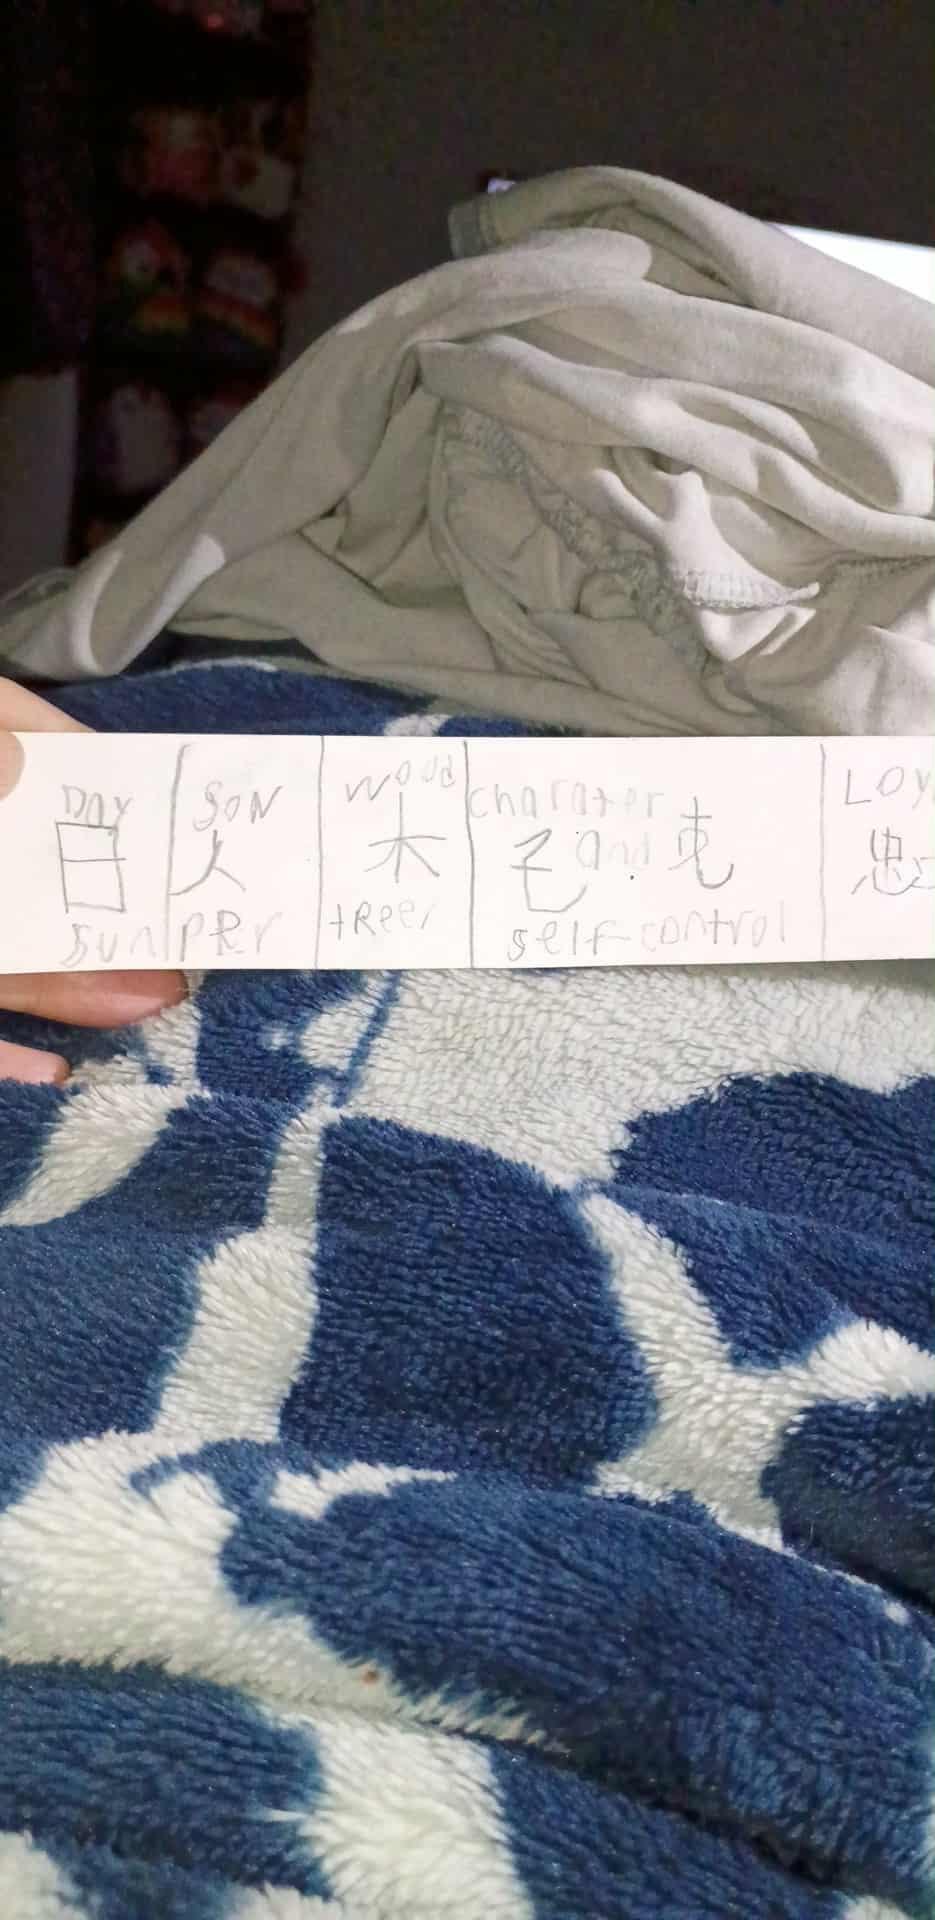 DAY
日
sun
SON
人
PER
wood
木
tReer
charater
己 and 克
self-control
LOY
忠